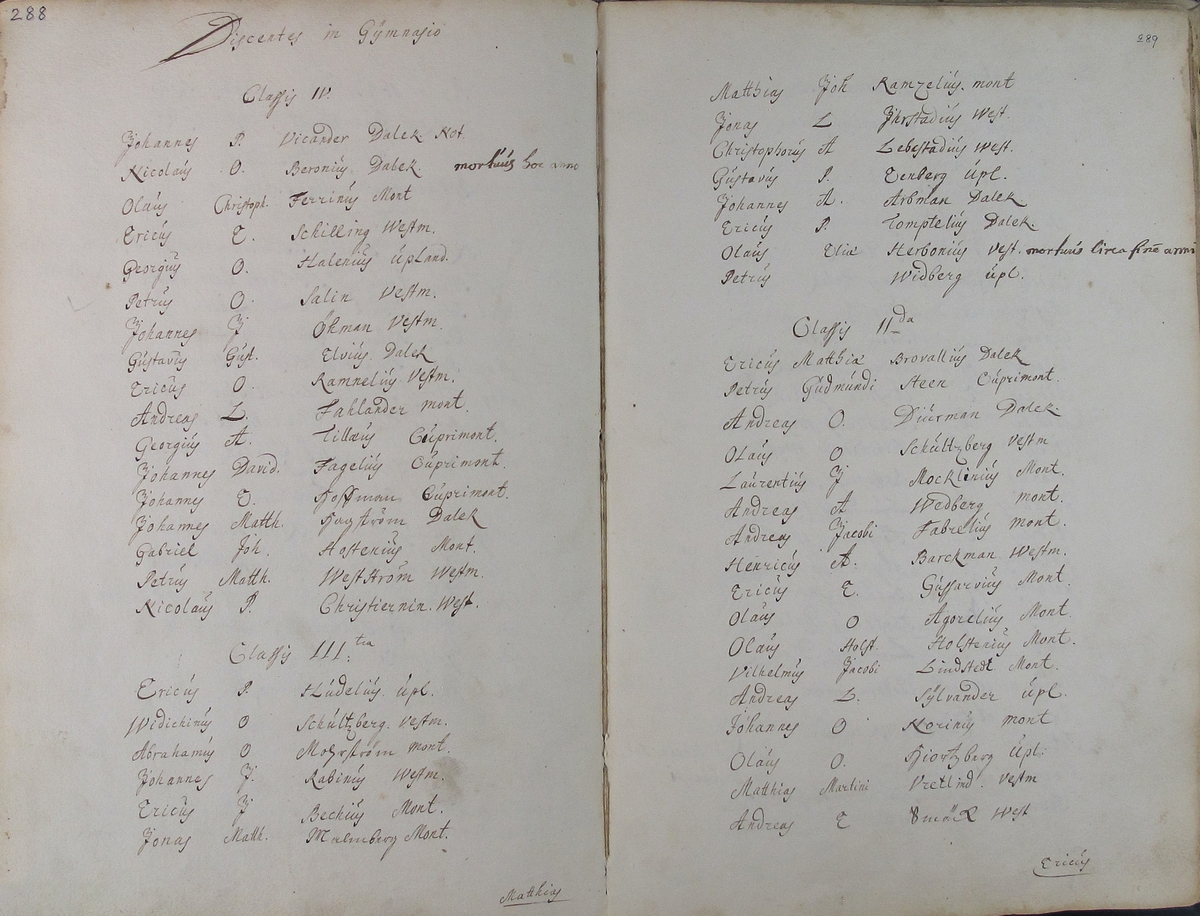 288
Discentes in Gÿmnasio
Classis IV.
Johannes P. Vicander Dalek. Not.
Nicolaús O. Beronius. Dalek mortuús hoc anno
Olaús Christoph. Ferriniús Mont
Ericús E. Schilling Westm.
Georgiús O. Haleniús Úpland.
Petrús O. Salin Vestm.
Johannes J Öhman Vestm.
Gústavús Gúst. Elviús. Dalek
Ericús O. Ramneliús Vestm.
Andreas L. Fahlander mont.
Georgiús A. Tillæús Cúprimont.
Johannes David. Fageliús Cúprimont.
Johannes E. Hoffman Cúprimont.
Johannes Matth. Hagström Dalek
Gabriel Joh. Hosteniús Mont.
Petrús Matth. Westström Westm.
Nicolaús P. Christiernin. West.
Classis III.tia
Ericús P. Húdeliús. Úpl.
Widichinús O Schúltzberg. Vestm.
Abrahamús O Mohrström mont.
Johannes J. Rabiniús Westm.
Ericús J Bechiús Mont.
Jonas Matth. Malmberg Mont.
Matthias
289
Matthias Joh Ramzeliús. mont
Jonas L West.
Christophorús A Lebestadiús West.
Gústavús P. Eenberg Úpl.
Johannes A. Arbman Dalek
Ericús P. Tompteliús Dalek.
Olaús Eliæ Herboniús Vest. mortuús circa finē anni
Petrús Widberg Úpl.
Classis II.da
Ericús Matthiæ Brovalliús Dalek
Petrús Gúdmúndi Steen Cúprimont.
Andreas O. Diúrman Dalek
Olaús O Schúltzberg Vestm
Laúrentiús J Mockliniús Mont.
Andreas A Wedberg mont.
Andreas Jacobi Fabreliús mont.
Henricús A. Barckman Westm.
Ericús E. Gússarviús Mont.
Olaús O Agoreliús Mont.
Olaús Holst. Holsteniús Mont.
Vilhelmús Jacobi Lindstedt Mont.
Andreas L. Sÿlvander Úpl.
Johannes O Noriniús mont
Olaús O. Hiortzberg Úpl.
Matthias Martini Vretlind. Vestm
Andreas E Smäck West
Ericús